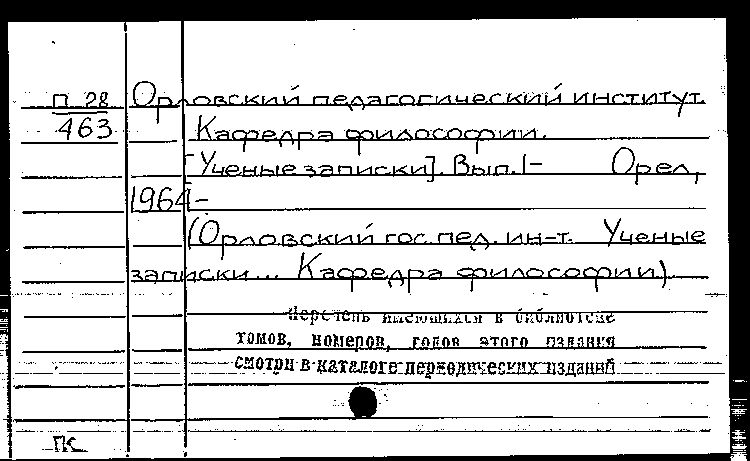 П 28 Орловский педагогический институт.
463 Кафедра философии.
[Ученые записки]. Вып. 1- Орел,
1964-
(Орловский гос. пед. ин-т. Ученые
записки... Кафедра философии)
Перечень имеющихся в библиотеке
томов, номеров, годов этого издания
смотри в каталоге периодических изданий
ПК